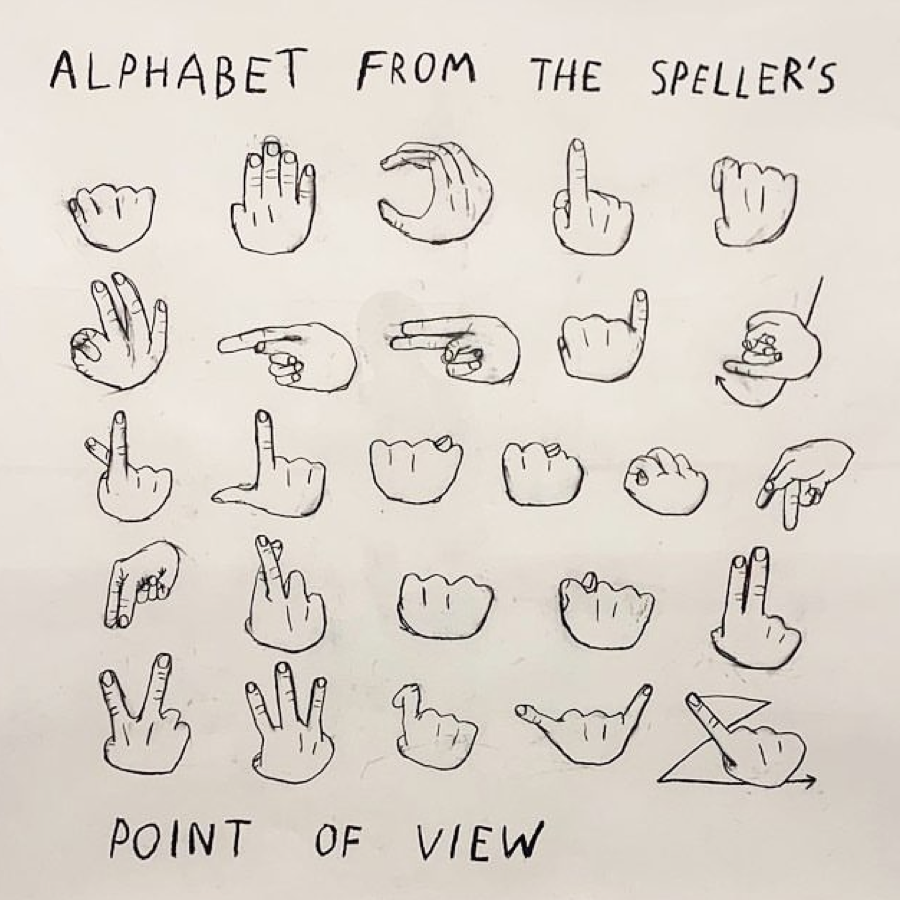 ALPHABET FROM THE SPELLER'S
POINT OF VIEW